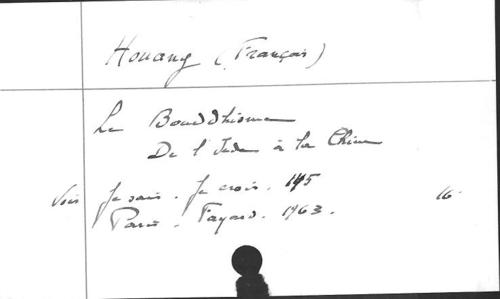 Houang (François)
Le Bouddhisme
De l'Inde à la Chine
Voir Je sais. Je crois. 145
Paris. Fayard. 1963. 16